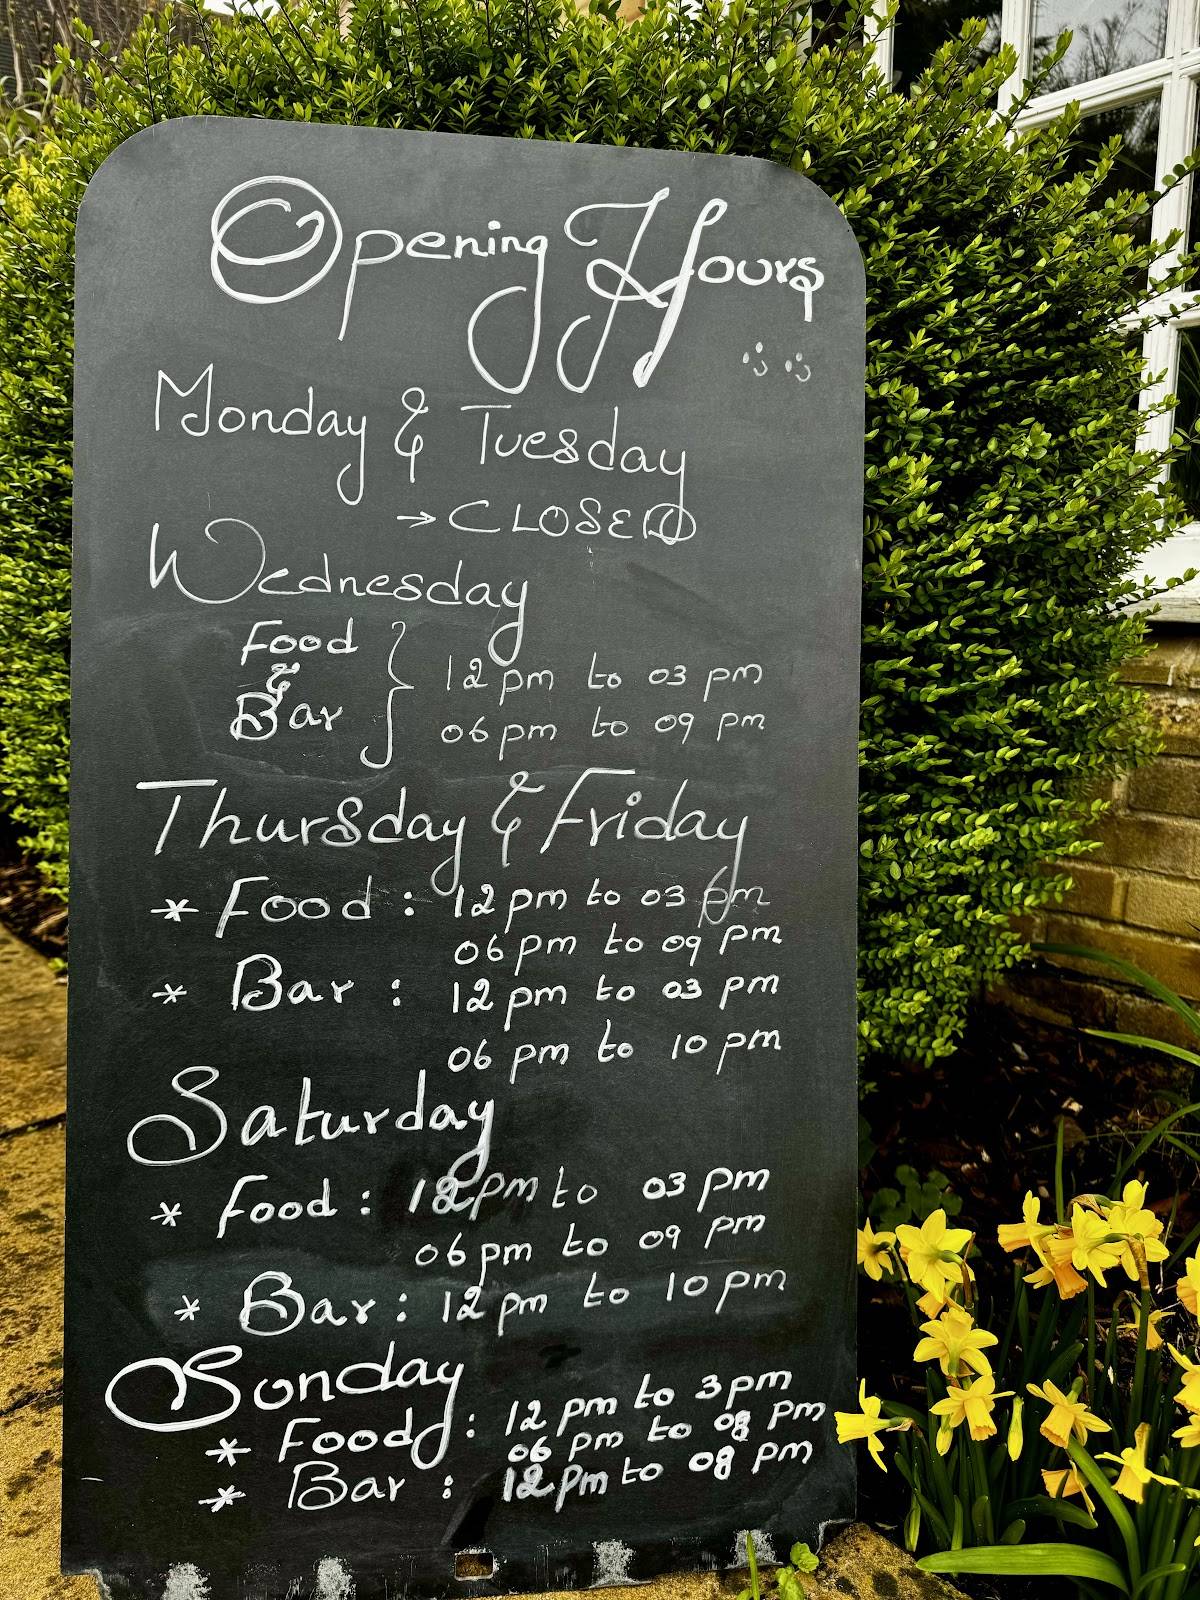 Opening Hours
Monday & Tuesday
→ CLOSED
Wednesday
Food
&
Bar
12 pm to 03 pm
06 pm to 09 pm
Thursday & Friday
* Food : 12 pm to 03 pm
06 pm to 09 pm
* Bar : 12 pm to 03 pm
06 pm to 10 pm
Saturday
* Food : 12 pm to 03 pm
06 pm to 09 pm
* Bar : 12 pm to 10 pm
Sonday
* Food : 12 pm to 3 pm
06 pm to 08 pm
* Bar : 12 pm to 08 pm